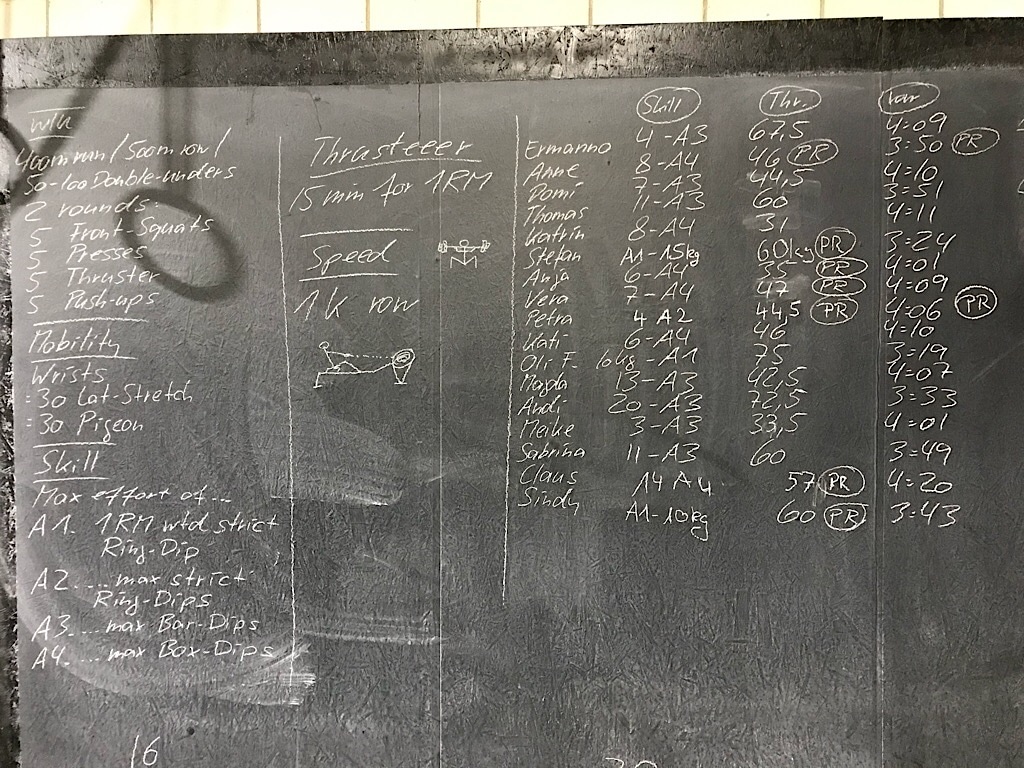 400m run / 500m row /
50-100 Double-unders
2 rounds:
5 Front-Squats
5 Presses
5 Thruster
5 Push-ups
Mobility
Wrists
:30 Lat-Stretch
:30 Pigeon
Skill
Max effort of...
A1. 1RM wtd strict
Ring-Dip
A2.... max strict
Ring-Dips
A3.... max Bar-Dips
A4.... max Box-Dips
16
Thrusteeer
15min for 1RM
Speed
1k row
Skill Thr.
Ermanno 4-A3 67,5 4:09
Anne 8-A4 46 PR 3:50 PR
Domi 7-A3 44,5 4:10
Thomas 11-A3 60 3:51
Katrin 8-A4 31 4:11
Stefan A1-15kg 60kg PR 3:24
Anja 6-A4 35 PR 4:01
Vera 7-A4 47 PR 4:09
Petra 4-A2 44,5 PR 4:06 PR
Kati 6-A4 46 4:10
Oli F. 16kg-A1 75 3:19
Magda 13-A3 42,5 4:07
Andi 20-A3 72,5 3:33
Meike 3-A3 33,5 4:01
Sabrina 11-A3 60 3:49
Claus 14 A4 57 PR 4:20
Sindy A1-10kg 60 PR 3:43